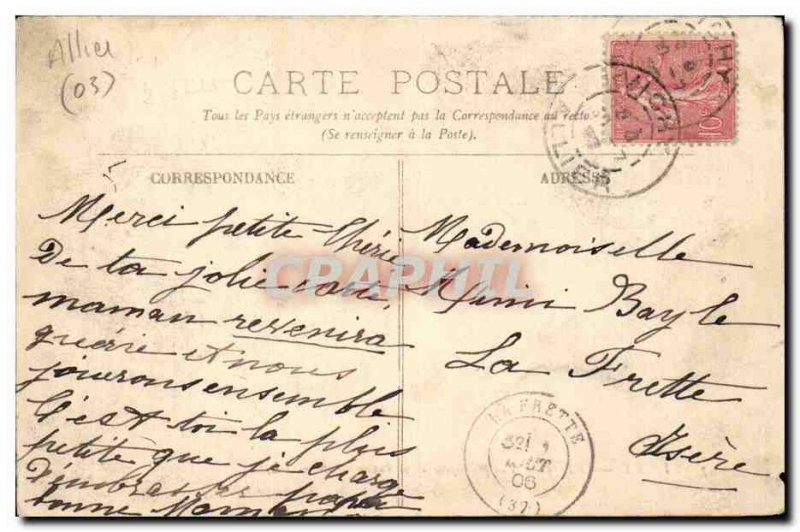 Allier
(03)
CARTE POSTALE
Tous les Pays étrangers n'acceptent pas la Correspondance au recto
(Se renseigner à la Poste).
CORRESPONDANCE
Merci petite Chérie
De ta jolie carte,
maman revenira
guérie et nous
jouerons ensemble
C'est toi la plus
petite que je charge
D'embrasser papa
bonne Maman
ADRESSE
Mademoiselle
Mimi Bayle
La Frette
Isère
10
VICHY
LA FRETTE
AOUT
06
(37)
CPAPHIL